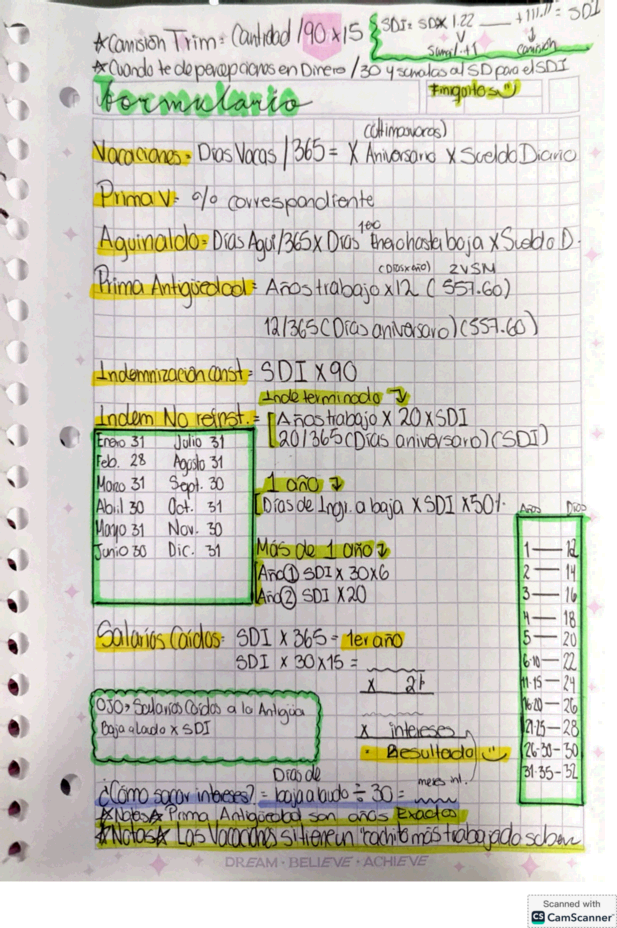 SDI = SD x 1.22 ___ + 111.11 = SDI
suma 1. +1 comisión
*Comisión Trim = Cantidad / 90 x 15
*Cuando te de percepciones en Dinero /30 y sumalas al SD para el SDI
Formulario
Finiquitos
(Ultimas vacas)
Vacaciones = Días Vacas / 365 = X Aniversario X Sueldo Diario
Prima V = % correspondiente
1ero
Aguinaldo = Días Agui/365 x Días Enero hasta baja x Sueldo D.
(Días x año) 2VSM
Prima Antigüedad = Años trabajo x 12 (557.60)
12/365 (Días aniversario) (557.60)
Indemnización const = SDI X 90
Indeterminado
Indem No reinst. = Años trabajo X 20 x SDI
20/365 (Días aniversario) (SDI)
Enero 31 Julio 31
Feb. 28 Agosto 31
Marzo 31 Sept. 30
Abril 30 Oct. 31
Mayo 31 Nov. 30
Junio 30 Dic. 31
1 año
Días de Ingr. a baja X SDI X 50%
Más de 1 año
Año ① SDI X 30 x 6
Año ② SDI X 20
Años Días
1 — 12
2 — 14
3 — 16
4 — 18
5 — 20
6-10 — 22
11-15 — 24
16-20 — 26
21-25 — 28
26-30 — 30
31-35 — 32
Salarios Caídos = SDI X 365 = 1er año
SDI X 30 x 15 =
X 2%
X intereses
= Resultado
OJO, Salarios Caídos a la Antigüa
Baja a laudo X SDI
Días de
¿Cómo sacar intereses? = baja a laudo ÷ 30 = meses int.
*Notas* Prima Antigüedad son años Exactos
*Notas* Las Vacaciones si tienen 'cachito más trabajado
DREAM · BELIEVE · ACHIEVE
Scanned with
CS CamScanner